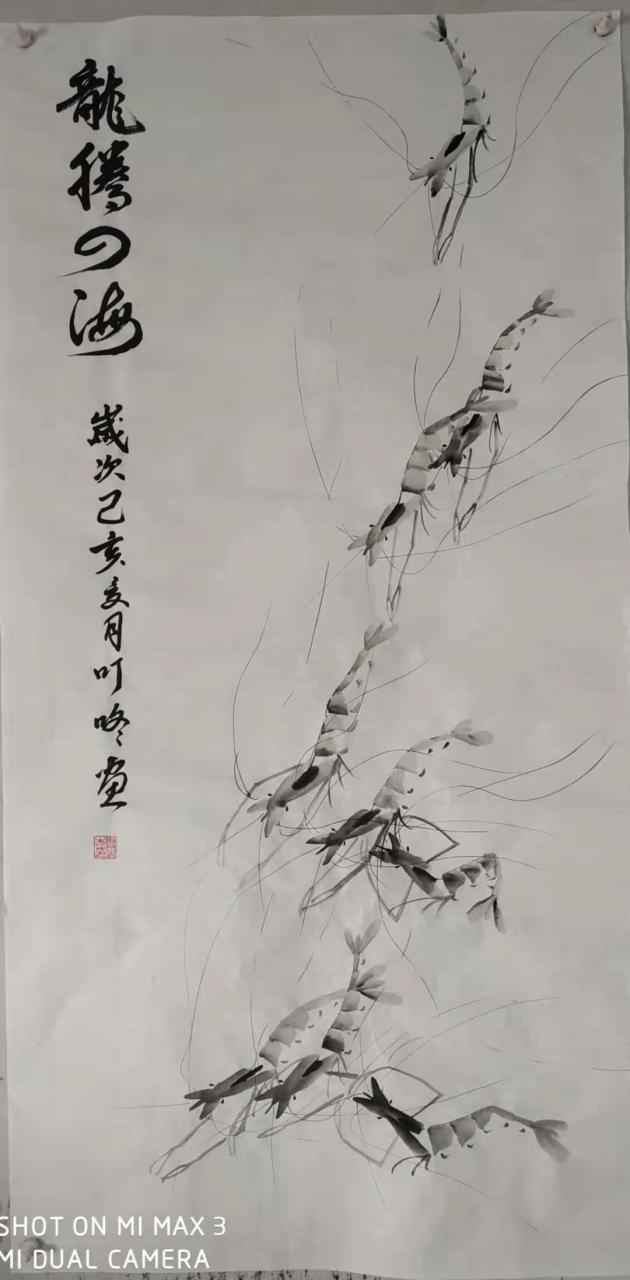 龍騰四海
歲次己亥夏月叮咚画
SHOT ON MI MAX 3
MI DUAL CAMERA